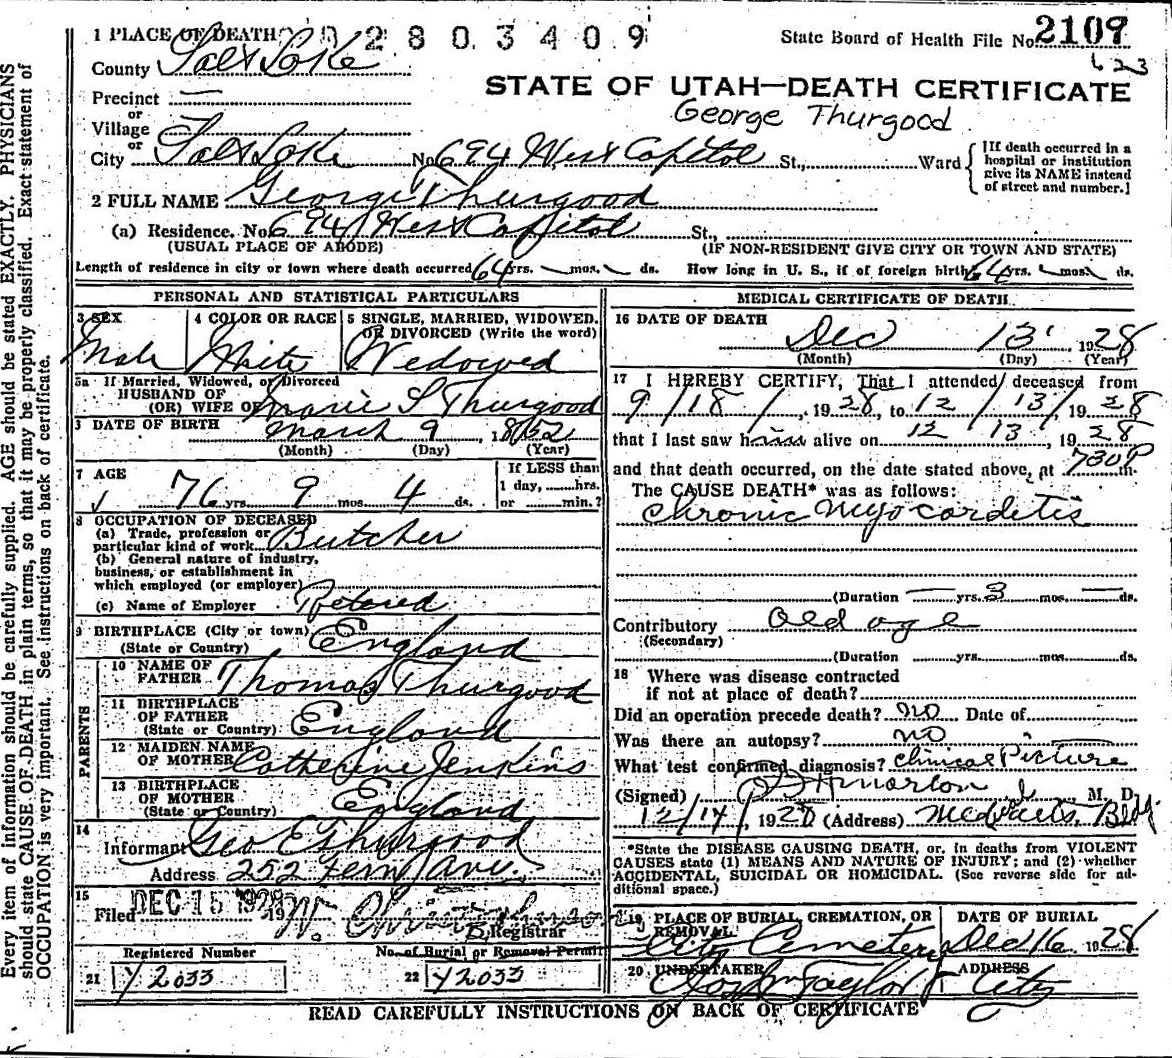 1 PLACE OF DEATH 2 8 0 3 4 0 9
State Board of Health File No. 2109
623
County Salt Lake
STATE OF UTAH—DEATH CERTIFICATE
Precinct —
George Thurgood
or
Village
or
City Salt Lake No. 694 West Capitol St., Ward
[If death occurred in a hospital or institution give its NAME instead of street and number.]
2 FULL NAME George Thurgood
(a) Residence. No. 694 West Capitol St.,
(USUAL PLACE OF ABODE) (IF NON-RESIDENT GIVE CITY OR TOWN AND STATE)
Length of residence in city or town where death occurred 64 yrs. — mos. — ds. How long in U. S., if of foreign birth 64 yrs. — mos. — ds.
PERSONAL AND STATISTICAL PARTICULARS
3 SEX 4 COLOR OR RACE 5 SINGLE, MARRIED, WIDOWED, OR DIVORCED (Write the word)
Male White Widowed
5a If Married, Widowed, or Divorced
HUSBAND OF
(OR) WIFE OF Marie S Thurgood
DATE OF BIRTH March 9, 1852
(Month) (Day) (Year)
7 AGE 76 yrs. 9 mos. 4 ds.
If LESS than
1 day, hrs.
or min.?
8 OCCUPATION OF DECEASED
(a) Trade, profession or
particular kind of work Butcher
(b) General nature of industry,
business, or establishment in
which employed (or employer)
(c) Name of Employer Retired
9 BIRTHPLACE (City or town)
(State or Country) England
PARENTS
10 NAME OF
FATHER Thomas Thurgood
11 BIRTHPLACE
OF FATHER
(State or Country) England
12 MAIDEN NAME
OF MOTHER Catherine Jenkins
13 BIRTHPLACE
OF MOTHER
(State or Country) England
14
Informant Geo E Thurgood
Address 252 Fern Ave.
15
Filed DEC 15 1928 19
Registrar
Registered Number No. of Burial or Removal Permit
21 Y 2033 22 Y2033
MEDICAL CERTIFICATE OF DEATH
16 DATE OF DEATH
Dec 13 1928
(Month) (Day) (Year)
17 I HEREBY CERTIFY, That I attended deceased from
9/18/, 1928, to 12/13/, 1928
that I last saw him alive on 12 13, 1928
and that death occurred, on the date stated above, at 730P m.
The CAUSE DEATH* was as follows:
Chronic Myocarditis
(Duration — yrs. 3 mos. — ds.
Contributory Old age
(Secondary)
(Duration yrs. mos. ds.
18 Where was disease contracted
if not at place of death?
Did an operation precede death? no Date of
Was there an autopsy? no
What test confirmed diagnosis? Clinical Picture
(Signed) M. D.
12/14, 1928 (Address) Bldg.
*State the DISEASE CAUSING DEATH, or, in deaths from VIOLENT
CAUSES state (1) MEANS AND NATURE OF INJURY; and (2) whether
ACCIDENTAL, SUICIDAL OR HOMICIDAL. (See reverse side for ad-
ditional space.)
19 PLACE OF BURIAL, CREMATION, OR REMOVAL DATE OF BURIAL
City Cemetery Dec 16 1928
20 UNDERTAKER ADDRESS
Taylor City
READ CAREFULLY INSTRUCTIONS ON BACK OF CERTIFICATE
Every item of information should be carefully supplied. AGE should be stated EXACTLY. PHYSICIANS
should state CAUSE OF DEATH in plain terms, so that it may be properly classified. Exact statement of
OCCUPATION is very important. See instructions on back of certificate.